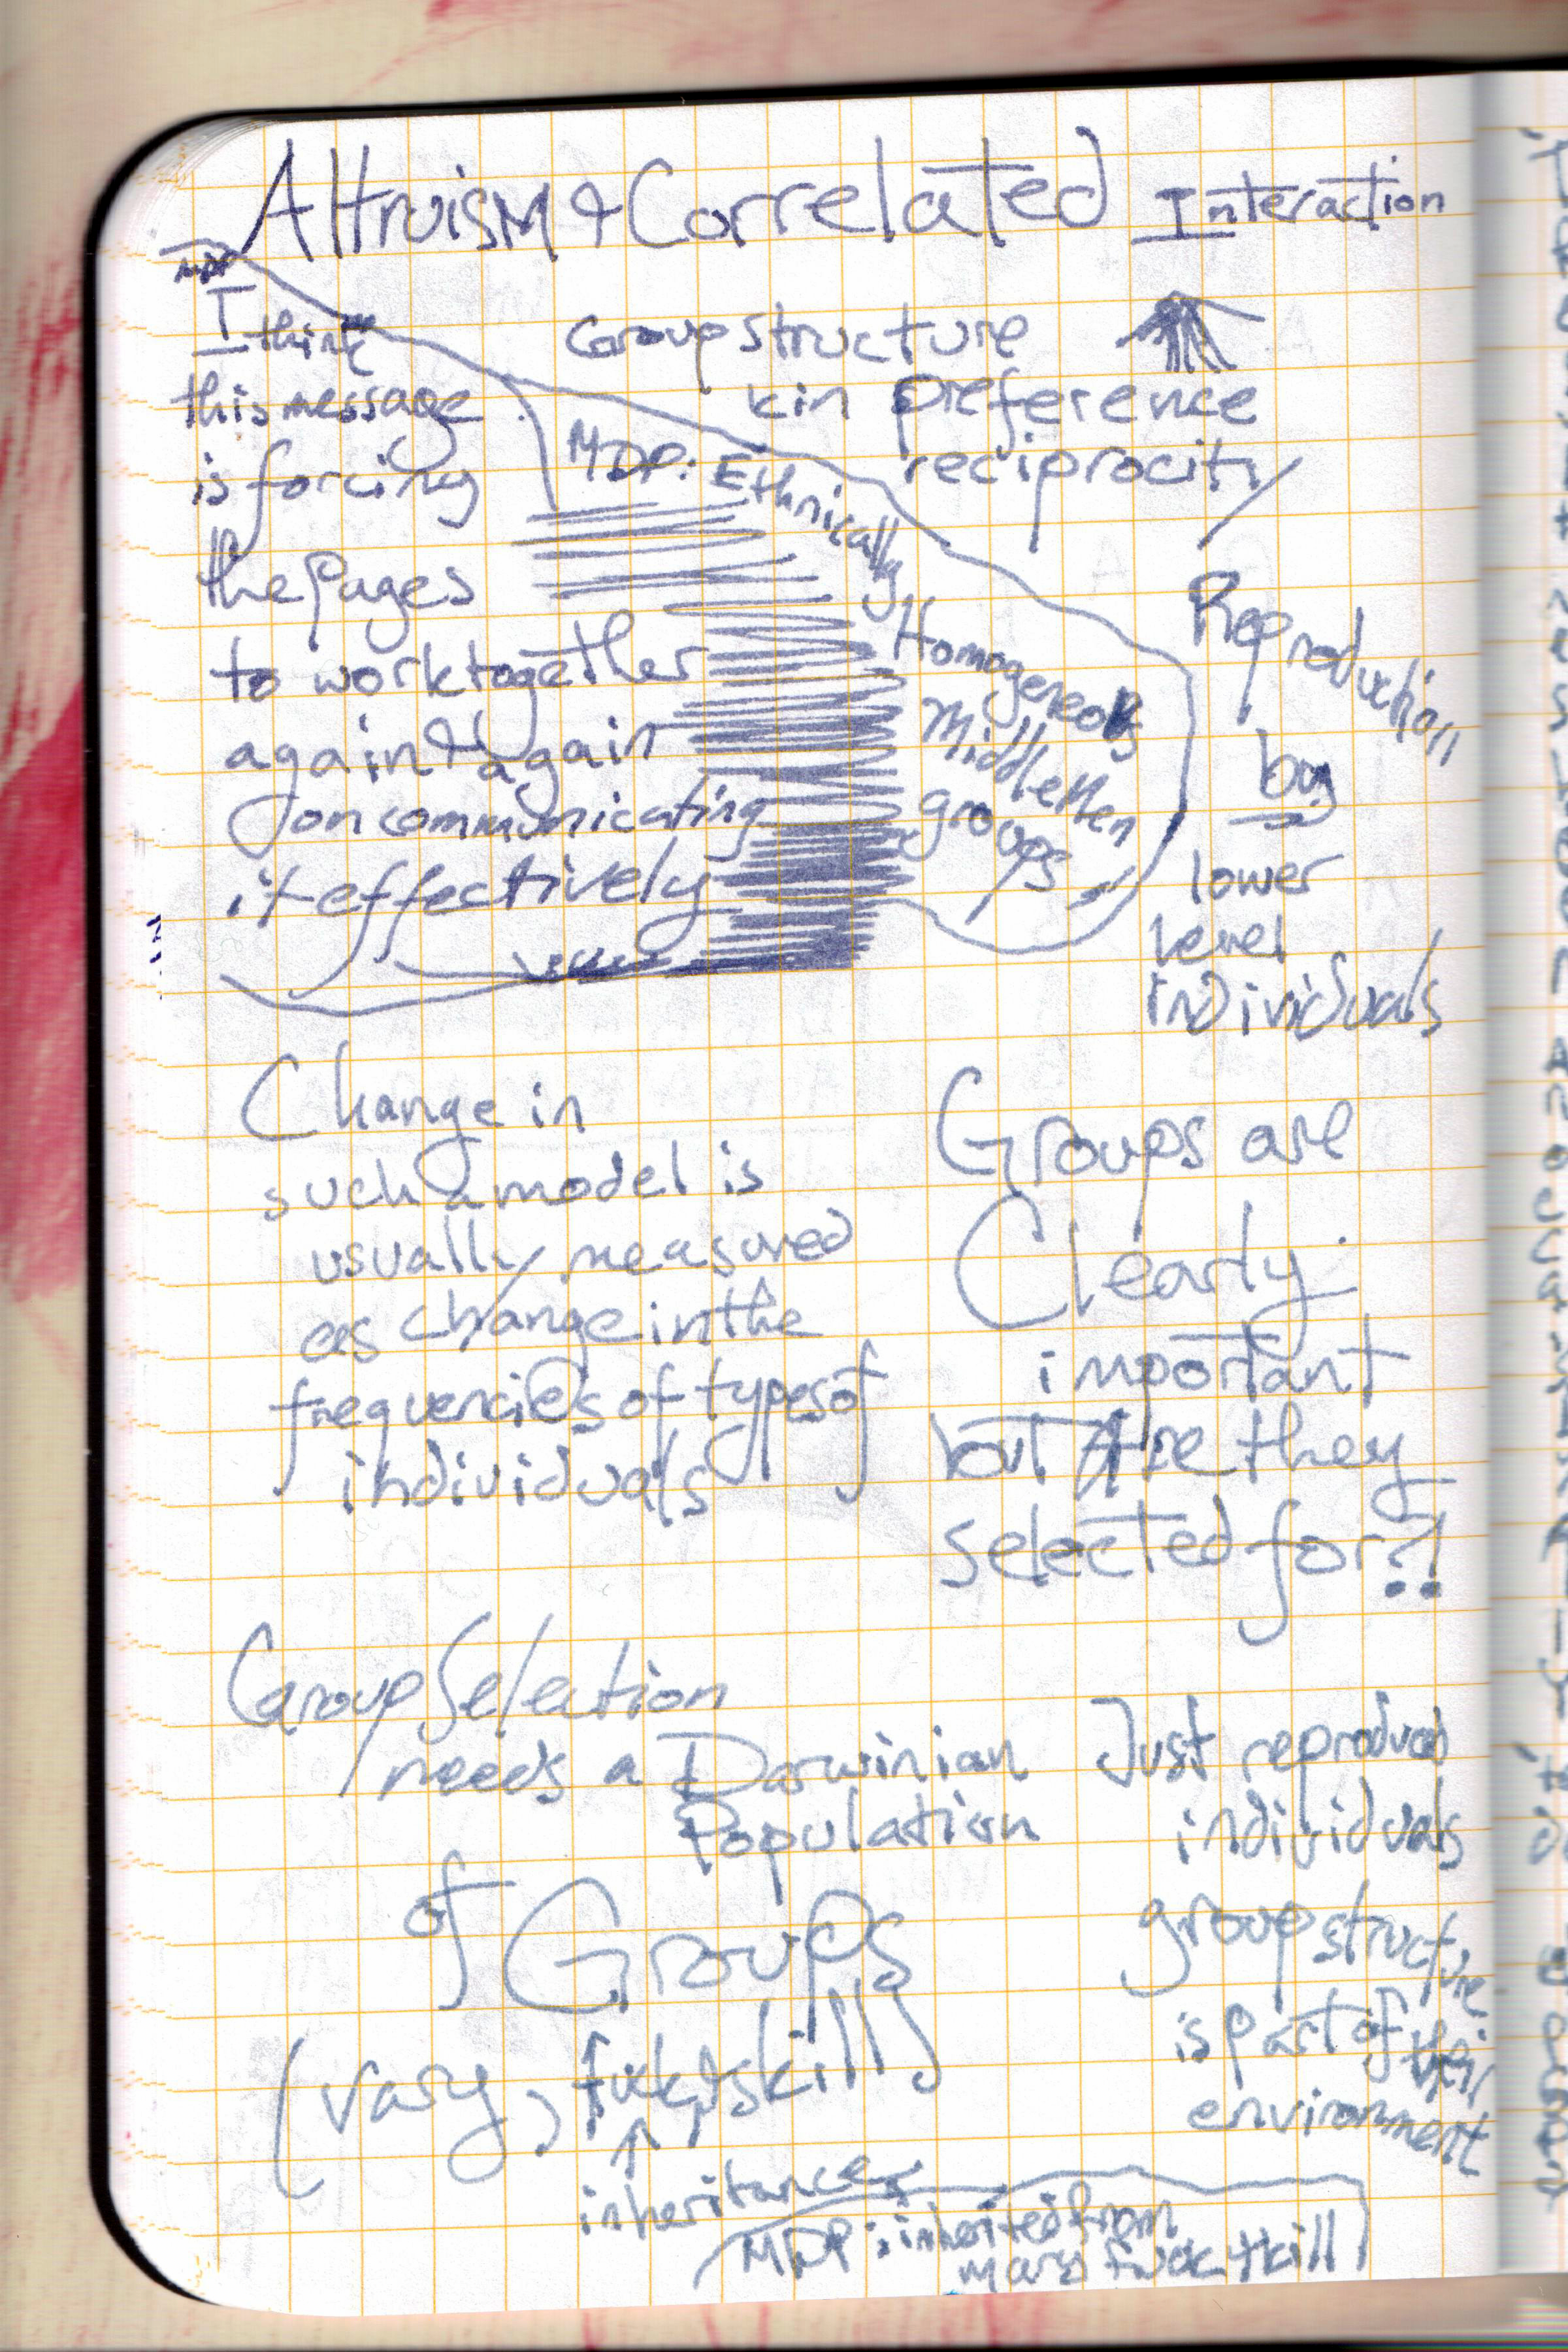 Altruism & Correlated Interaction
Group structure
kin preference
reciprocity
I think
this message
is forcing
the pages
to work together
again & again
on communicating
it effectively
MDP: Ethnically
Homogeneous
Middlemen
groups
Reproduction
by
lower
level
individuals
Change in
such a model is
usually measured
as change in the
frequencies of types of
individuals
Groups are
Clearly
important
but Are they
selected for?!
Group Selection
needs a Darwinian
Population
of Groups
(vary, fuck & kill)
inheritance
MDP: inherited from
vary fuck + kill
Just
individuals
group structure
is part of their
environment